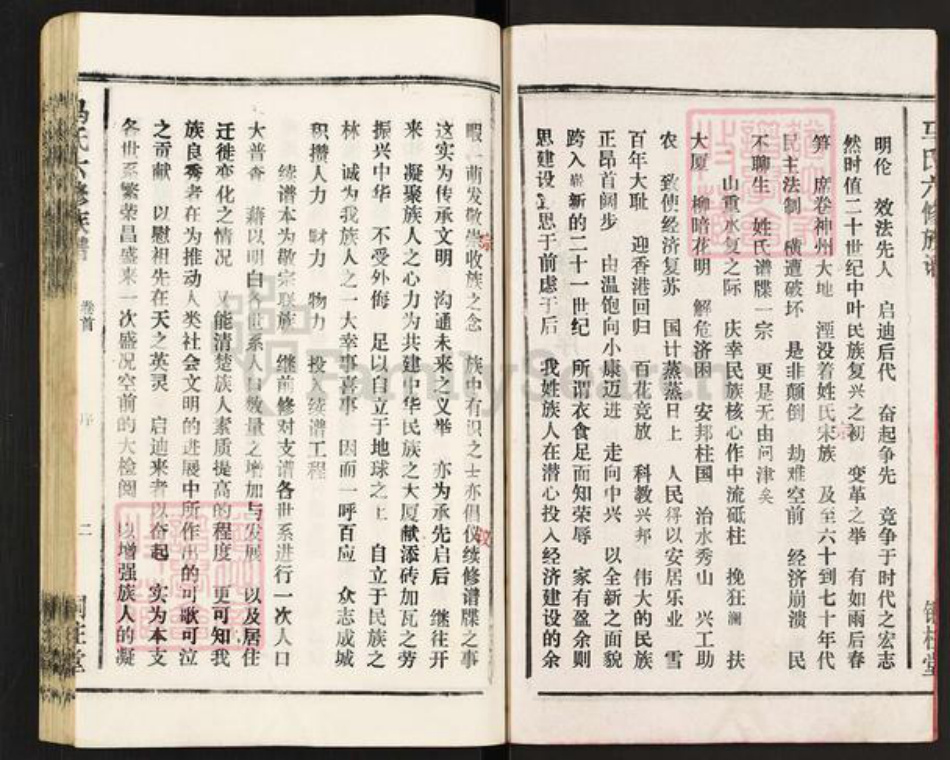 马氏六修族谱
明伦 效法先人 启迪后代 奋起争先 竞争于时代之宏志
然时值二十世纪中叶民族复兴之初 变革之举 有如雨后春
笋 席卷神州大地 湮没着姓氏宋族 及至六十到七十年代
民主法制 横遭破坏 是非颠倒 劫难空前 经济崩溃 民
不聊生 姓氏谱牒一宗 更是无由问津矣
山重水复之际 庆幸民族核心作中流砥柱 挽狂澜 扶
大厦 柳暗花明 解危济困 安邦柱国 治水秀山 兴工助
农 致使经济复苏 国计蒸蒸日上 人民得以安居乐业 雪
百年大耻 迎香港回归 百花竞放 科教兴邦 伟大的民族
正昂首阔步 由温饱向小康迈进 走向中兴 以全新之面貌
跨入崭新的二十一世纪 所谓衣食足而知荣辱 家有盈余则
思建设 宜思于前虑于后 我姓族人在潜心投入经济建设的余
暇 萌发敬崇收族之念 族中有识之士亦倡仪续修谱牒之事
宗
议
这实为传承文明 沟通未来之义举 亦为承先启后 继往开
来 凝聚族人之心力为共建中华民族之大厦献添砖加瓦之劳
振兴中华 不受外侮 足以自立于地球之上 自立于民族之
林 诚为我族人之一大幸事喜事 因而一呼百应 众志成城
积攒人力 财力 物力 投入续谱工程
续谱本为敬宗联族 继前修对支谱各世系进行一次人口
大普查 藉以明白各世系人口数量之增加与发展 以及居住
迁徙变化之情况 又能清楚族人素质提高的程度 更可知我
族良秀者在为推动人类社会文明的进展中所作出的可歌可泣
之贡献 以慰祖先在天之英灵 启迪来者以奋起 实为本支
各世系繁荣昌盛来一次盛况空前的大检阅 以增强族人的凝
马氏六修族谱
卷首
序
二
FamilySearch